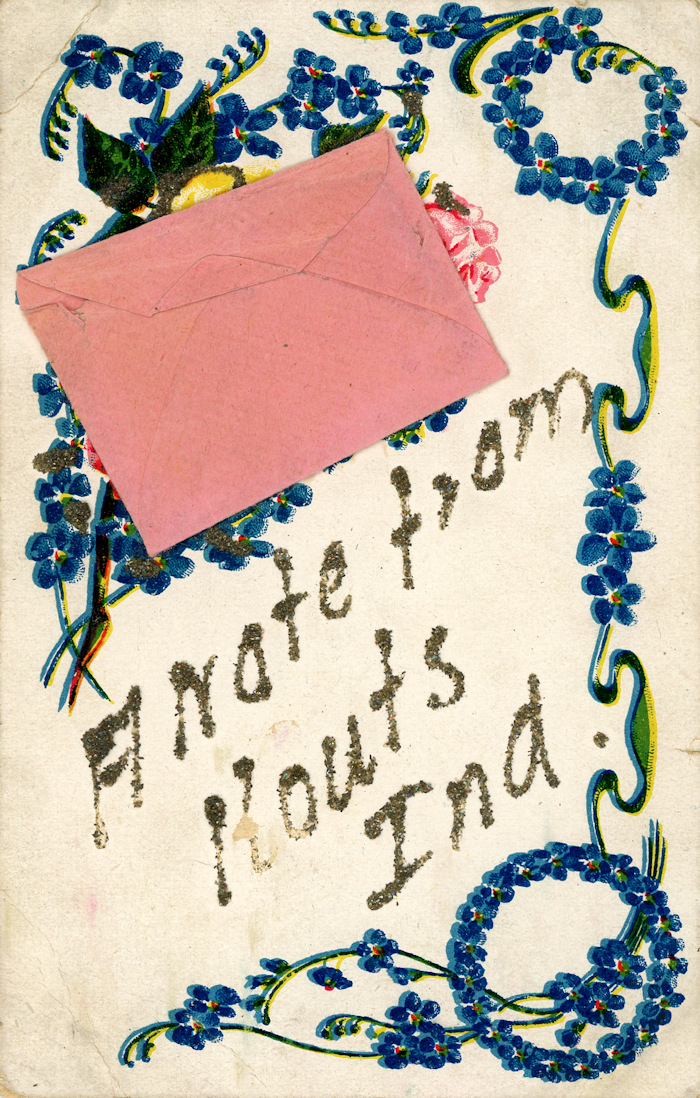 A note from
Kouts
Ind.